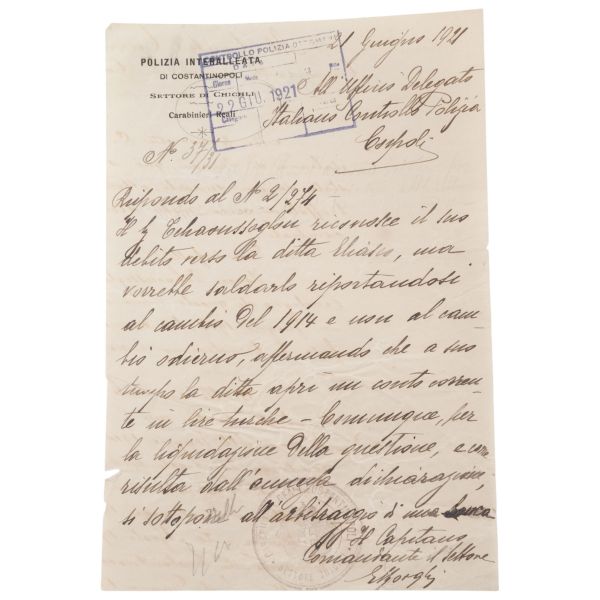 POLIZIA INTERALLEATA
DI COSTANTINOPOLI
SETTORE DI CHICHLI
Carabinieri Reali
CONTROLLO POLIZIA OTTOMANA
22 GIU. 1921
21 Giugno 1921
All'Ufficio Delegato
Italiano Controllo Polizia
Cospoli
N° 37/31
Rispondo al N° 2/274
Il Sig Tchaousseglou riconosce il suo
debito verso la ditta Eliasco, ma
vorrebbe saldarlo riportandosi
al cambio del 1914 e non al cam
bio odierno, affermando che a suo
tempo la ditta aprì un conto corren
te in lire turche - Comunque, per
la liquidazione della questione, e come
risulta dall'annessa dichiarazione,
si sottopone all'arbitraggio di una banca
Il Capitano
Comandante il settore